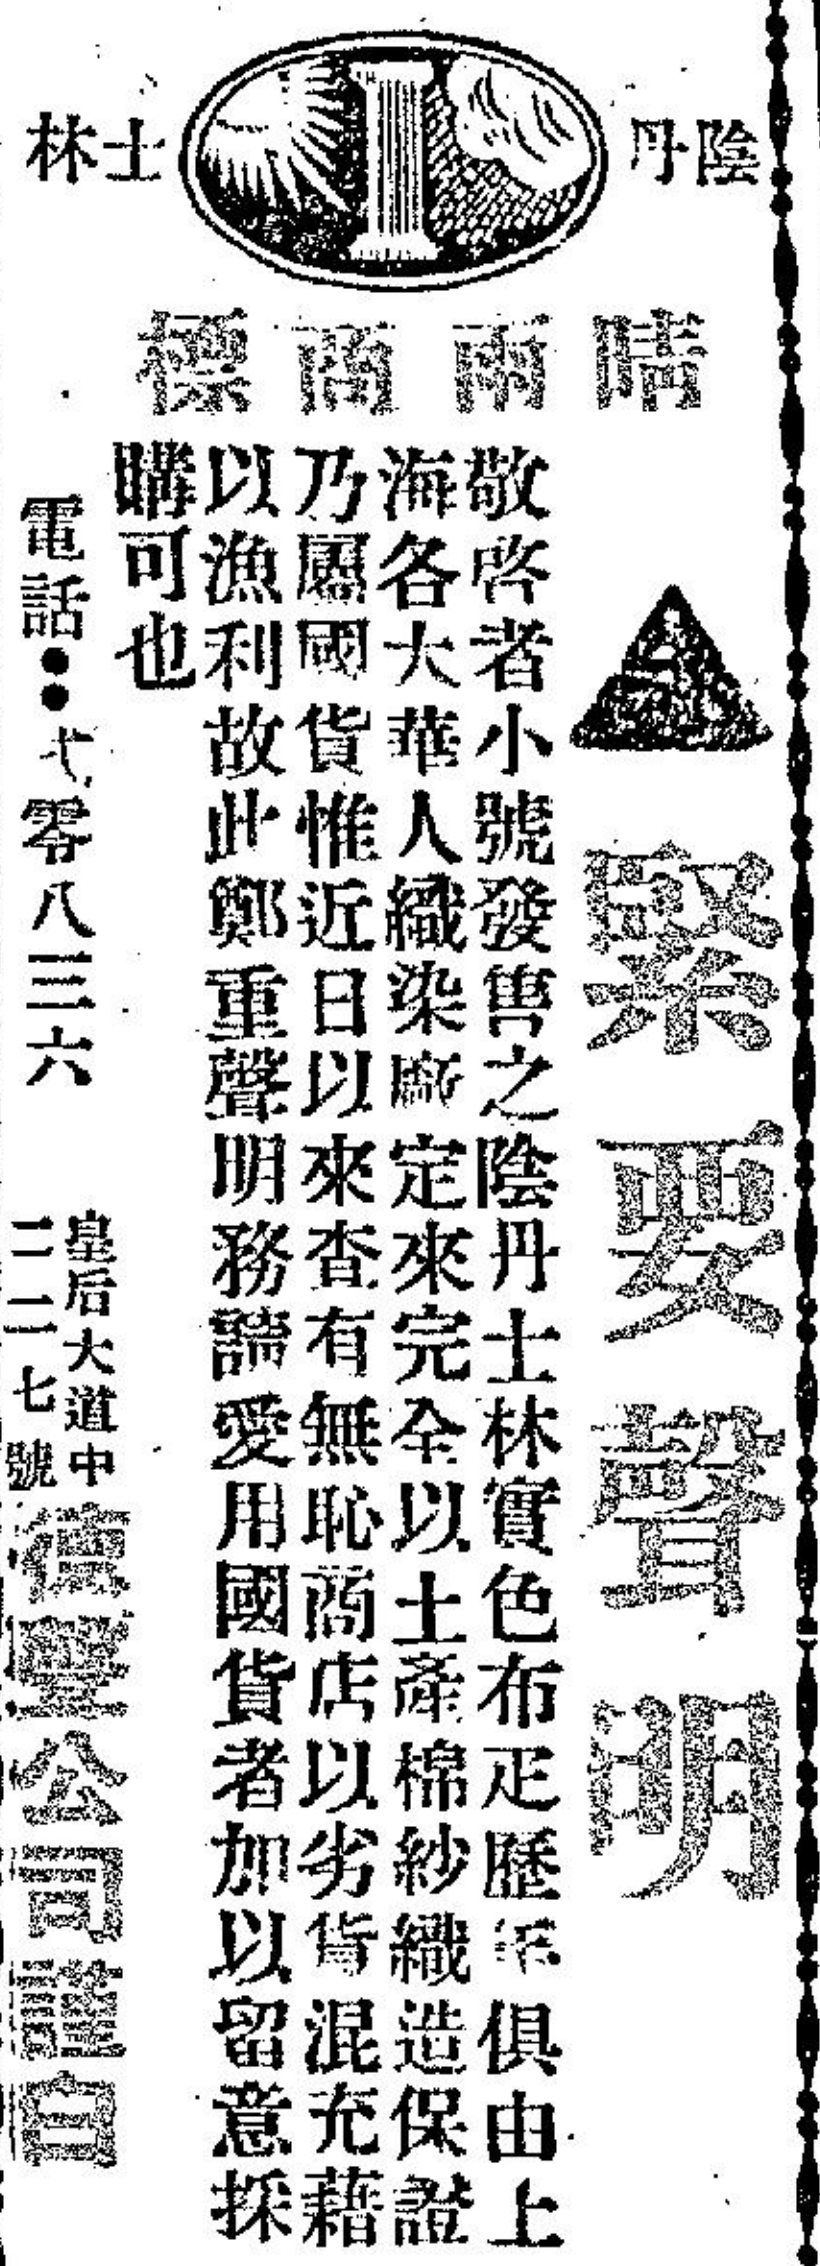 陰丹士林
晴雨商標
緊要聲明
敬啓者小號發售之陰丹士林實色布疋歷年俱由上
海各大華人織染廠定來完全以土產棉紗織造保證
乃屬國貨惟近日以來查有無恥商店以劣貨混充藉
以漁利故此鄭重聲明務請愛用國貨者加以留意採
購可也
電話：弍零八三六
皇后大道中
二二七號
豐公司謹白